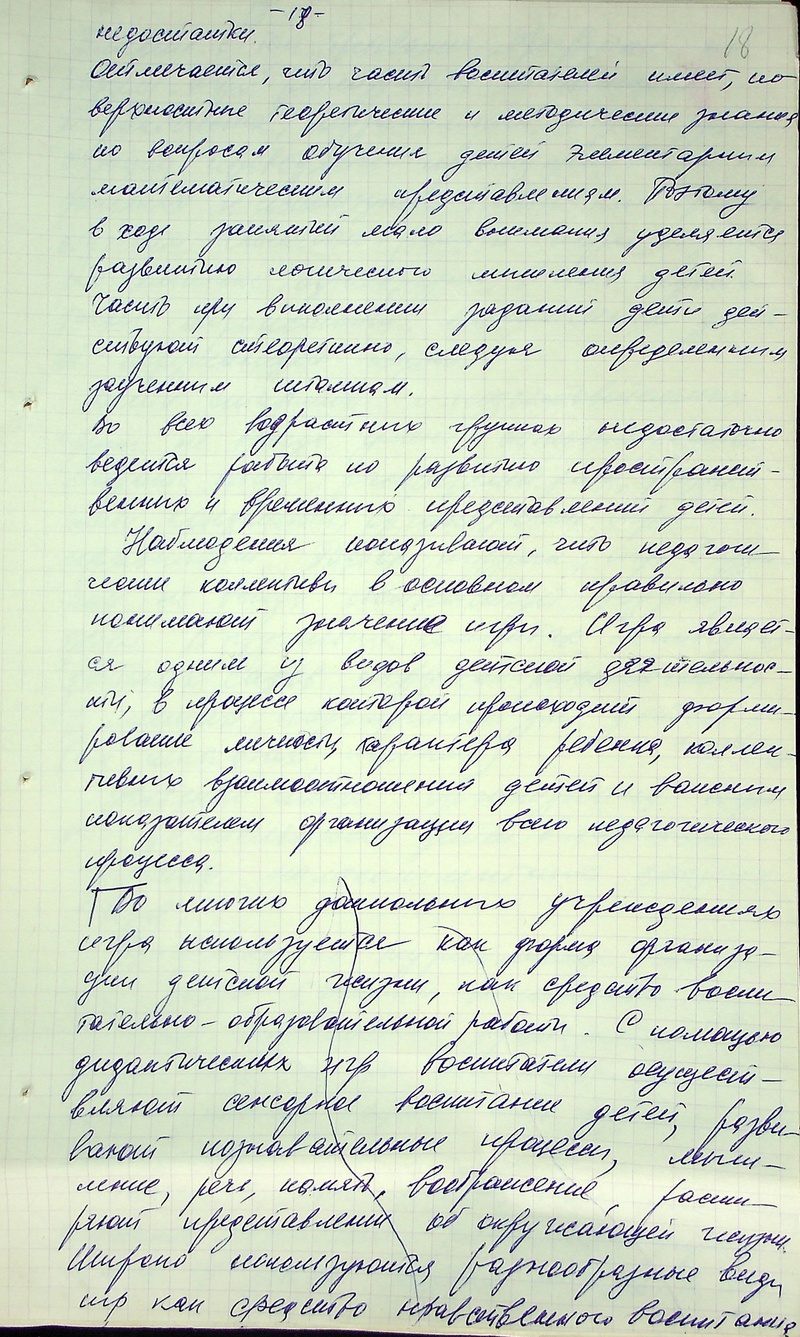 -18-
18
недостатки.
Отмечается, что часть воспитателей имеет, по-
верхностные теоретические и методические знания
по вопросам обучения детей элементарным
математическим представлениям. Поэтому
в ходе занятий мало внимания уделяется
развитию логического мышления детей.
Часто при выполнении заданий дети дей-
ствуют стеоретипно, следуя определенным
заученным штампам.
Во всех возрастных группах недостаточно
ведется работа по развитию пространст-
венных и временных представлений детей.
Наблюдения показывают, что педагоги-
ческие коллективы в основном правильно
понимают значение игры. Игра являет-
ся одним из видов детской деятельнос-
ти, в процессе которой происходит форми-
рование личности, характера ребенка, коллек-
тивных взаимоотношений детей и важным
показателем организации всего педагогического
процесса.
Во многих дошкольных учреждениях
игра используется как форма организа-
ции детской жизни, как средство воспи-
тательно-образовательной работы. С помощью
дидактических игр воспитатели осущест-
вляют сенсорное воспитание детей, разви-
вают познавательные процессы, мыш-
ление, речь, память, воображение, расши-
ряют представления об окружающей жизни.
Широко используются разнообразные виды
игр как средство нравственного воспитания